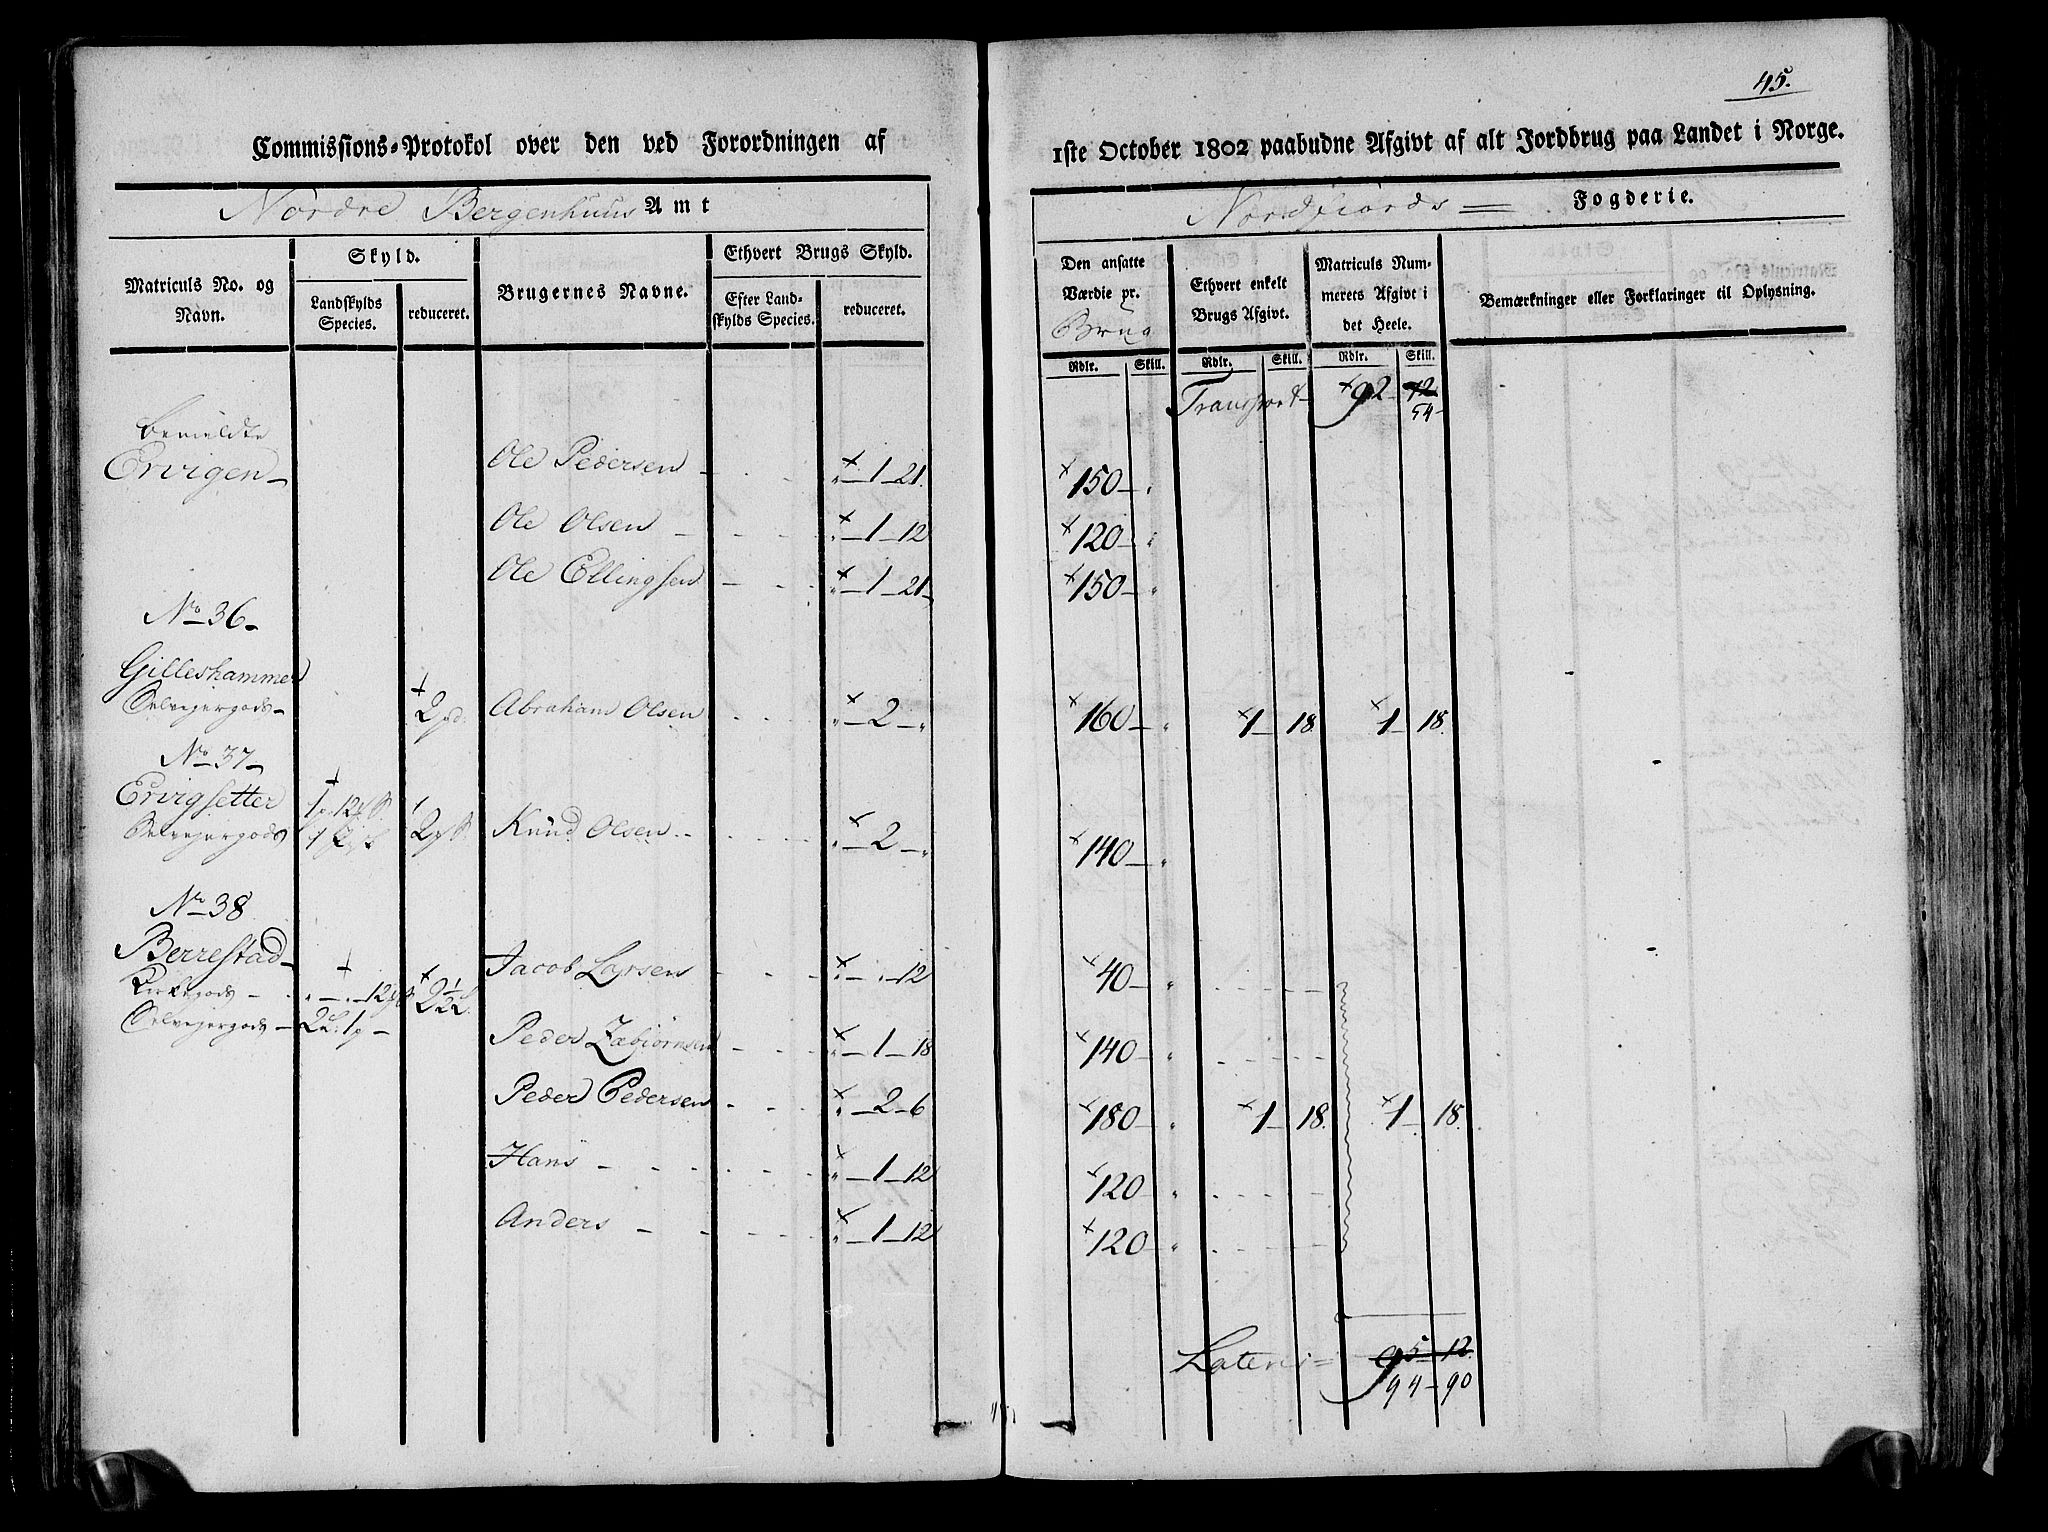 45.
Commissions-Protokol over den ved Forordningen af 1ste October 1802 paabudne Afgivt af alt Jordbrug paa Landet i Norge.
Nordre Bergenhuus Amt
Nordfiords Fogderie.
Matriculs No. og Navn.
Skyld.
Landskylds Species.
reduceret.
Brugernes Navne.
Ethvert Brugs Skyld.
Efter Landskylds Species.
reduceret.
Den ansatte Værdie pr. Brug
Ethvert enkelt Brugs Afgivt.
Matriculs Nummerets Afgivt i det Heele.
Bemærkninger eller Forklaringer til Oplysning.
Rdlr. Skill. Rdlr. Skill. Rdlr. Skill.
Transport 92 12
54
bemeldte
Ervigen Ole Pedersen 1 21. 150
Ole Olsen 1 12 120
Ole Ellingsen 1 21 150
No 36
Gilleshammer
Selvejergods 2 Abraham Olsen 2 160 1 18. 1 18.
No 37
Ervigsetter 1 p. 12
Selvejergods 2 Knud Olsen 2 140
No 38
Berrestad Jacob Larsen 12 40
Kirkegods 12 2 1/2 L.
Selvejergods 2 L. 1 p
Peder 1 18 140
Peder Pedersen 2 6 180 1 18. 1 18.
Hans 1 12 120
Anders 1 12 120
Lateris 95 12
94 90